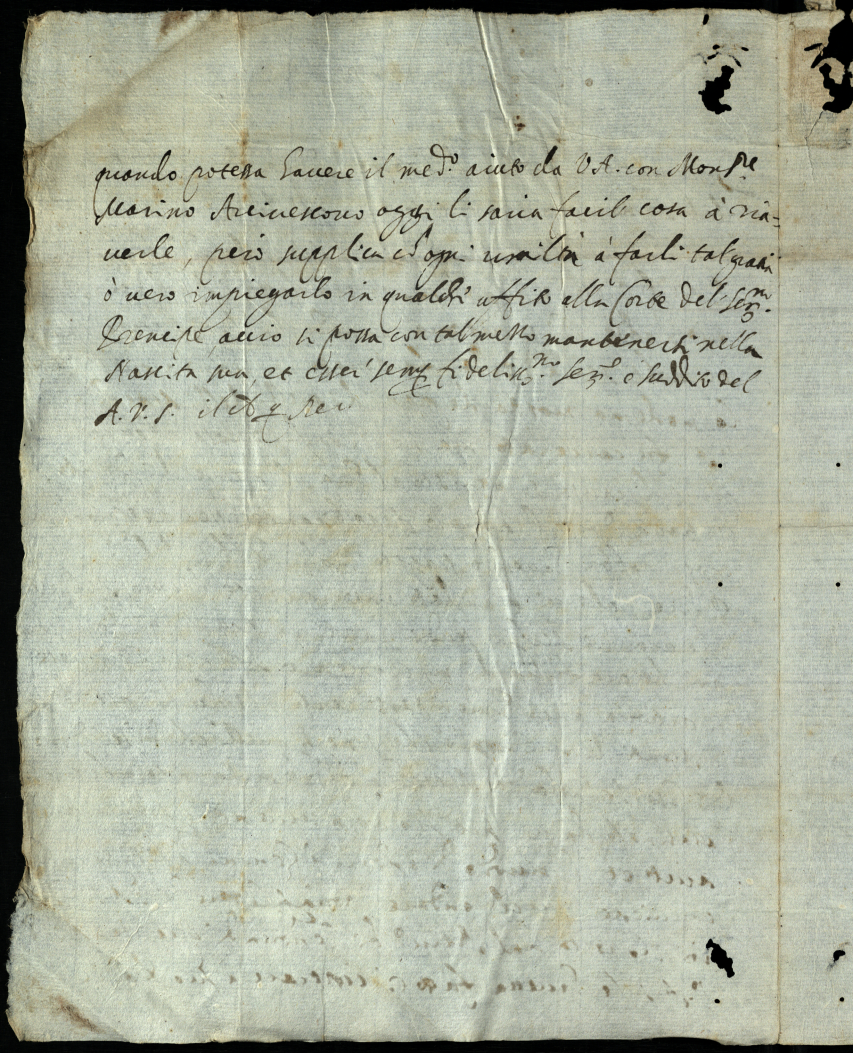 quando potessa havere il med.º aiuto da V.A. con Mons.re
Marino Arcivescovo oggi li saria facil cosa à ria=
verle, però supplica cō ogni umiltà à farli tal grazia
ò vero impiegarlo in qualchè uffito alla Corte del Ser.mo
Prencipe, acciò si possa con tal mezzo mantenersi nella
Nascita sua, et esser semp fidelis.mo Ser.e e suddito del
A.V.S.